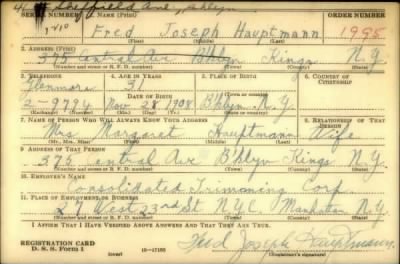 Sheffield Ave, Bklyn
SERIAL NUMBER 1. NAME (Print) ORDER NUMBER
Fred Joseph Hauptmann 1995
2. ADDRESS (Print)
375 Central Ave Bklyn Kings N.Y.
(Number and street or R. F. D. number) (Town) (County) (State)
3. TELEPHONE 4. AGE IN YEARS 5. PLACE OF BIRTH 6. COUNTRY OF CITIZENSHIP
Glenmore 31 Bklyn
2-9794 Nov 28 1908 N.Y.
(Exchange) (Number) (Mo.) (Day) (Yr.) (State or country)
7. NAME OF PERSON WHO WILL ALWAYS KNOW YOUR ADDRESS 8. RELATIONSHIP OF THAT PERSON
Mrs Margaret Hauptmann Wife
(Mr., Mrs., Miss) (First) (Middle) (Last)
9. ADDRESS OF THAT PERSON
375 Central Ave Bklyn Kings N.Y.
(Number and street or R. F. D. number) (Town) (County) (State)
10. EMPLOYER'S NAME
Consolidated Trimming Corp.
11. PLACE OF EMPLOYMENT OR BUSINESS
27 West 23rd St NYC. Manhatan N.Y.
(Number and street or R. F. D. number) (Town) (County) (State)
I AFFIRM THAT I HAVE VERIFIED ABOVE ANSWERS AND THAT THEY ARE TRUE.
REGISTRATION CARD
D. S. S. Form 1 (over) 16-17105 Fred Joseph Hauptmann